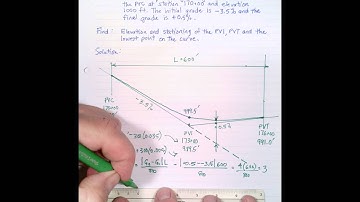 the PVC at station 170+00 and elevation
1000 ft. The initial grade is -3.5% and the
final grade is +0.5%.
Find: Elevation and stationing of the PVI, PVT and the
lowest point on the curve.
Solution:
L = 600'
-3.5%
PVC
989.5'
0.5%
PVT
176+00
991.0'
-300(0.035)
PVI
173+00
989.5'
+300(0.005)
= |G₂ - G₁| L / 800 = |0.5 - -3.5| 600 / 800 = 4(600) / 800 = 3